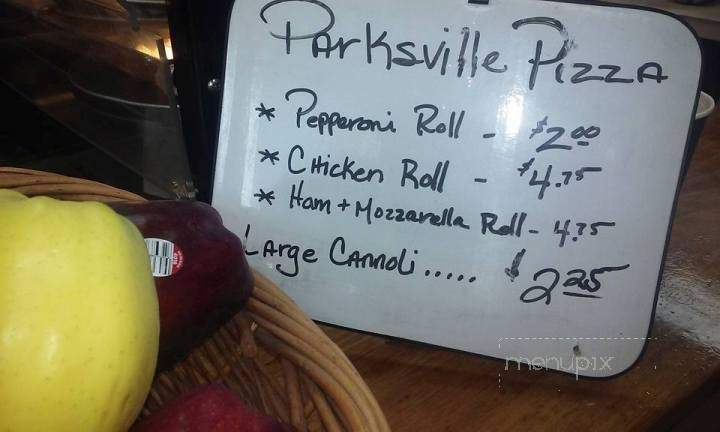 Parksville Pizza
* Pepperoni Roll - $2.00
* Chicken Roll - $4.75
* Ham + Mozzarella Roll - 4.75
Large Cannoli..... $2.25
menupix